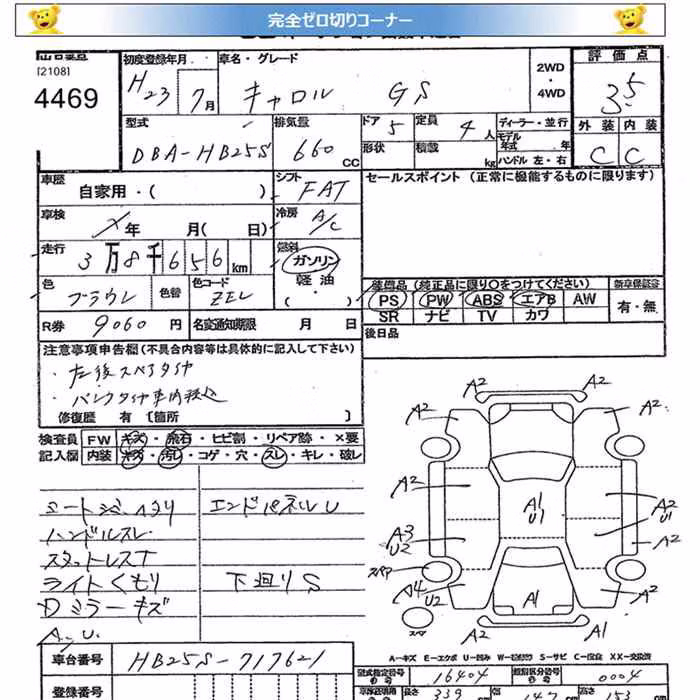 完全ゼロ切りコーナー
[2108]
4469
初度登録年月
H23 7月
車名・グレード
キャロル GS
2WD
・4WD
評価点
3.5
型式
DBA-HB25S
排気量
660 CC
ドア 5
定員 4人
形状
積載 kg
ディーラー・並行
モデル年式 年
ハンドル 左・右
外装 内装
C C
車歴
自家用・( )
シフト
FAT
セールスポイント(正常に機能するものに限ります)
車検
年 月( 日)
冷房
A/C
走行
3万8千656km
燃料
ガソリン
軽油
・( )
色
ブラウン
色替
色コード
ZEL
装備品(純正品に限り○をつけてください)
PS PW ABS エアB AW
SR ナビ TV カワ
新車保証書
有・無
R券 9060円
名変通知期限 月 日
後日品
注意事項申告欄(不具合内容等は具体的に記入して下さい)
・左後スペアタイヤ
・パンクタイヤ車内積込
修復歴 有〔箇所 〕
検査員記入欄
FW キズ・飛石・ヒビ割・リペア跡・×要
内装 キズ・汚レ・コゲ・穴・スレ・キレ・破レ
シートシミ・ヘタリ
エンドパネルU
ハンドルスレ
スタットレスT
ライトくもり
下廻りS
Dミラーキズ
A,U
A2 A2
A2 A2
A2 A1 U1 A2 U1
A3 U2 A2
スペア A4 U2 A1 A2
スペア A2
A-キズ E-エクボ U-凹み W-波打ち S-サビ C-腐食 XX-交換済
車台番号 HB25S-717621
型式指定番号 16404
類別区分番号 0004
登録番号
長さ 339
幅 147
高さ 153